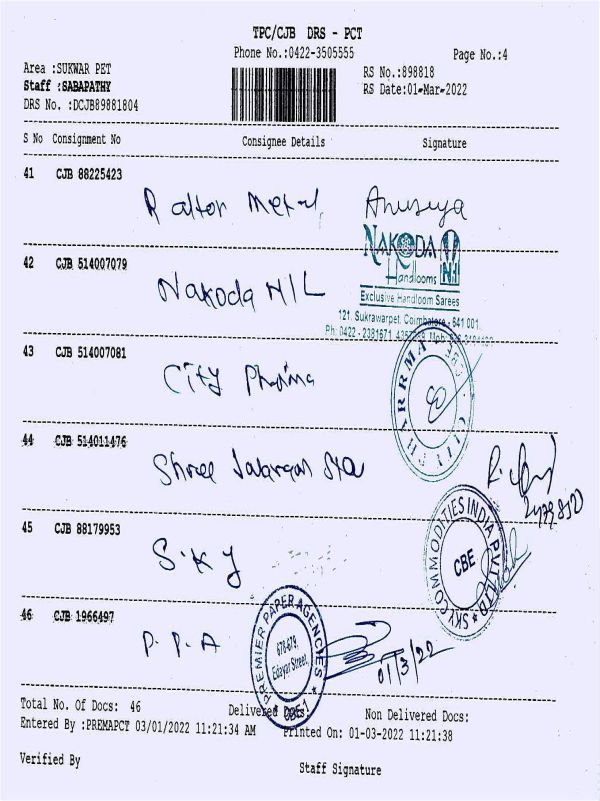 TPC/CJB DRS - PCT
Phone No.:0422-3505555 Page No.:4
Area :SUKWAR PET RS No.:898818
Staff :SABAPATHY RS Date:01-Mar-2022
DRS No. :DCJB89881804
S No Consignment No Consignee Details Signature
41 CJB 88225423
Anusuya
NAKODA
Handlooms
Exclusive Handloom Sarees
121, Sukrawarpet, Coimbatore - 641 001.
Ph: 0422 - 2381671
42 CJB 514007079
Nakoda H/L
43 CJB 514007081
City Pharma
44 CJB 514011476
Shree
45 CJB 88179953
S.K Y
SKY COMMODITIES INDIA PVT LTD
CBE
46 CJB 1966497
P. P. A
PREMIER PAPER AGENCIES
678-679,
Edayar Street,
CBE-1
01/3/22
Total No. Of Docs: 46 Delivered Docs: Non Delivered Docs:
Entered By :PREMAPCT 03/01/2022 11:21:34 AM Printed On: 01-03-2022 11:21:38
Verified By Staff Signature